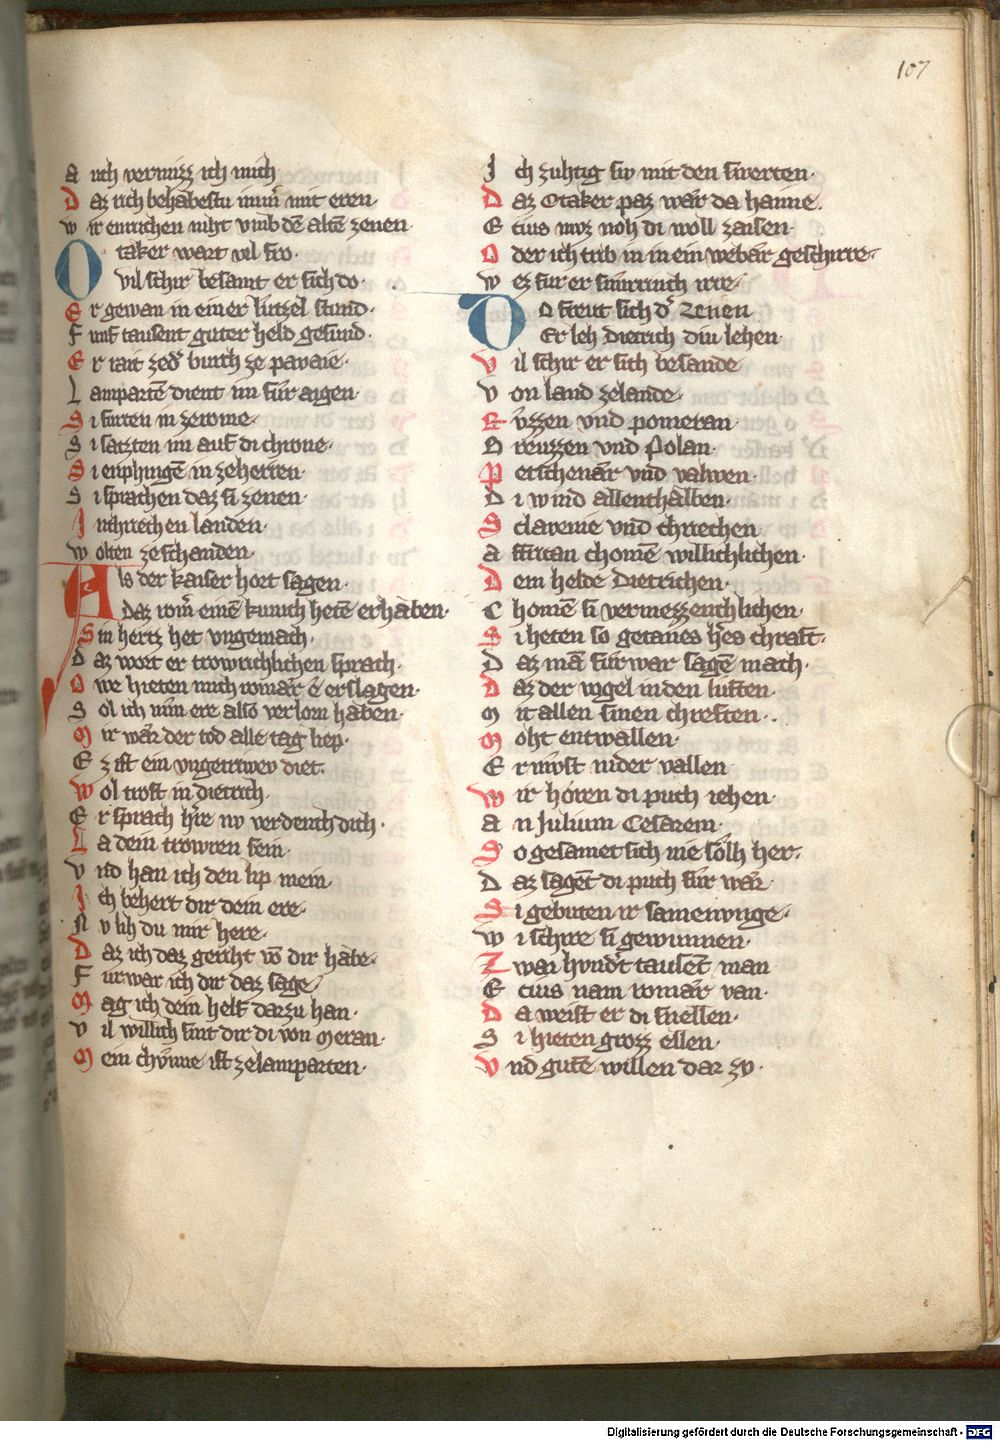 107
A uch vermizz ich mich
D az ich behabestu imm̄ mit eren·
W ir enrichen niht vmb dē altē zenen·
O taker wart vil fro·
Vil schir besamt er sich do·
E r gewan in einer lutzel stund·
F umf tausent guter held gesund·
E r rait zed͛ burch ze pavaie·
L ampartē dient im fur aigen·
S i furten in zerome·
S i satzten im auf di chrone·
S i enphingē in zeherren·
S i sprachen daz si zenen·
I nchriechen landen·
W olten zeschanden·
A ls der kaiser hort sagen·
Daz rom͛ einē kunich hetē erhaben·
S in hertz het vngemach·
D az wort er trowrichlichen sprach·
O we hieten mich romār ē erslagen·
S ol ich min ere also verlorn haben·
M ir wār der tod alle tag liep·
E z ist ein vngetriwev diet·
W ol trost in dietrich·
E r sprach h͛re nv verdench dich·
L a dein trowren sein·
V nd han ich den lip mein·
I ch behert dir dein ere·
N v lih du mir here·
D az ich daz geriht vō dir habe·
F urwar ich dir daz sage
M ag ich dein helf darzu han·
V il willich sint dir di von Meran·
M ein chvnne ist zelamparten·
I ch zuhtig siv mit den swerten·
D az Otaker paz wār da haime·
E cius mvz noh di woll zaisen·
O der ich trib in in ein webār geschirre·
W ez fur er snurrinch irre·
D o freut sich d͛ Zenen
Er leh Dietrich div lehen·
V il schir er sich besande
V on land zelande·
R vzzen vnd pomeran·
B reuzzen vnd Polan·
P etschenār vnd valwen·
D i wind allenthalben·
S clavenie vnd chriechen
A ffrican chomē willichlichen·
D em helde Dietrichen·
C homē si vermezzenchlichen·
S i heten so getanes h͛es chraft·
D az mā furwar sagē mach·
D az der vogel in den luften·
M it allen sinen chreften··
M oht entwallen·
E r mvst nider vallen
W ir horen di puch iehen·
A n Julium Cesarem·
S o gesamet sich nie solh her·
D az sagēt di puch fur wār·
S i gebuten ir samenvnge·
W i schire si gewunnen·
Z wai hvnd͛t tausēt man
E cius nam romār van·
D a weist er di snellen·
S i hieten grozz ellen·
V nd gutē willen dar zv·
Digitalisierung gefördert durch die Deutsche Forschungsgemeinschaft - DFG